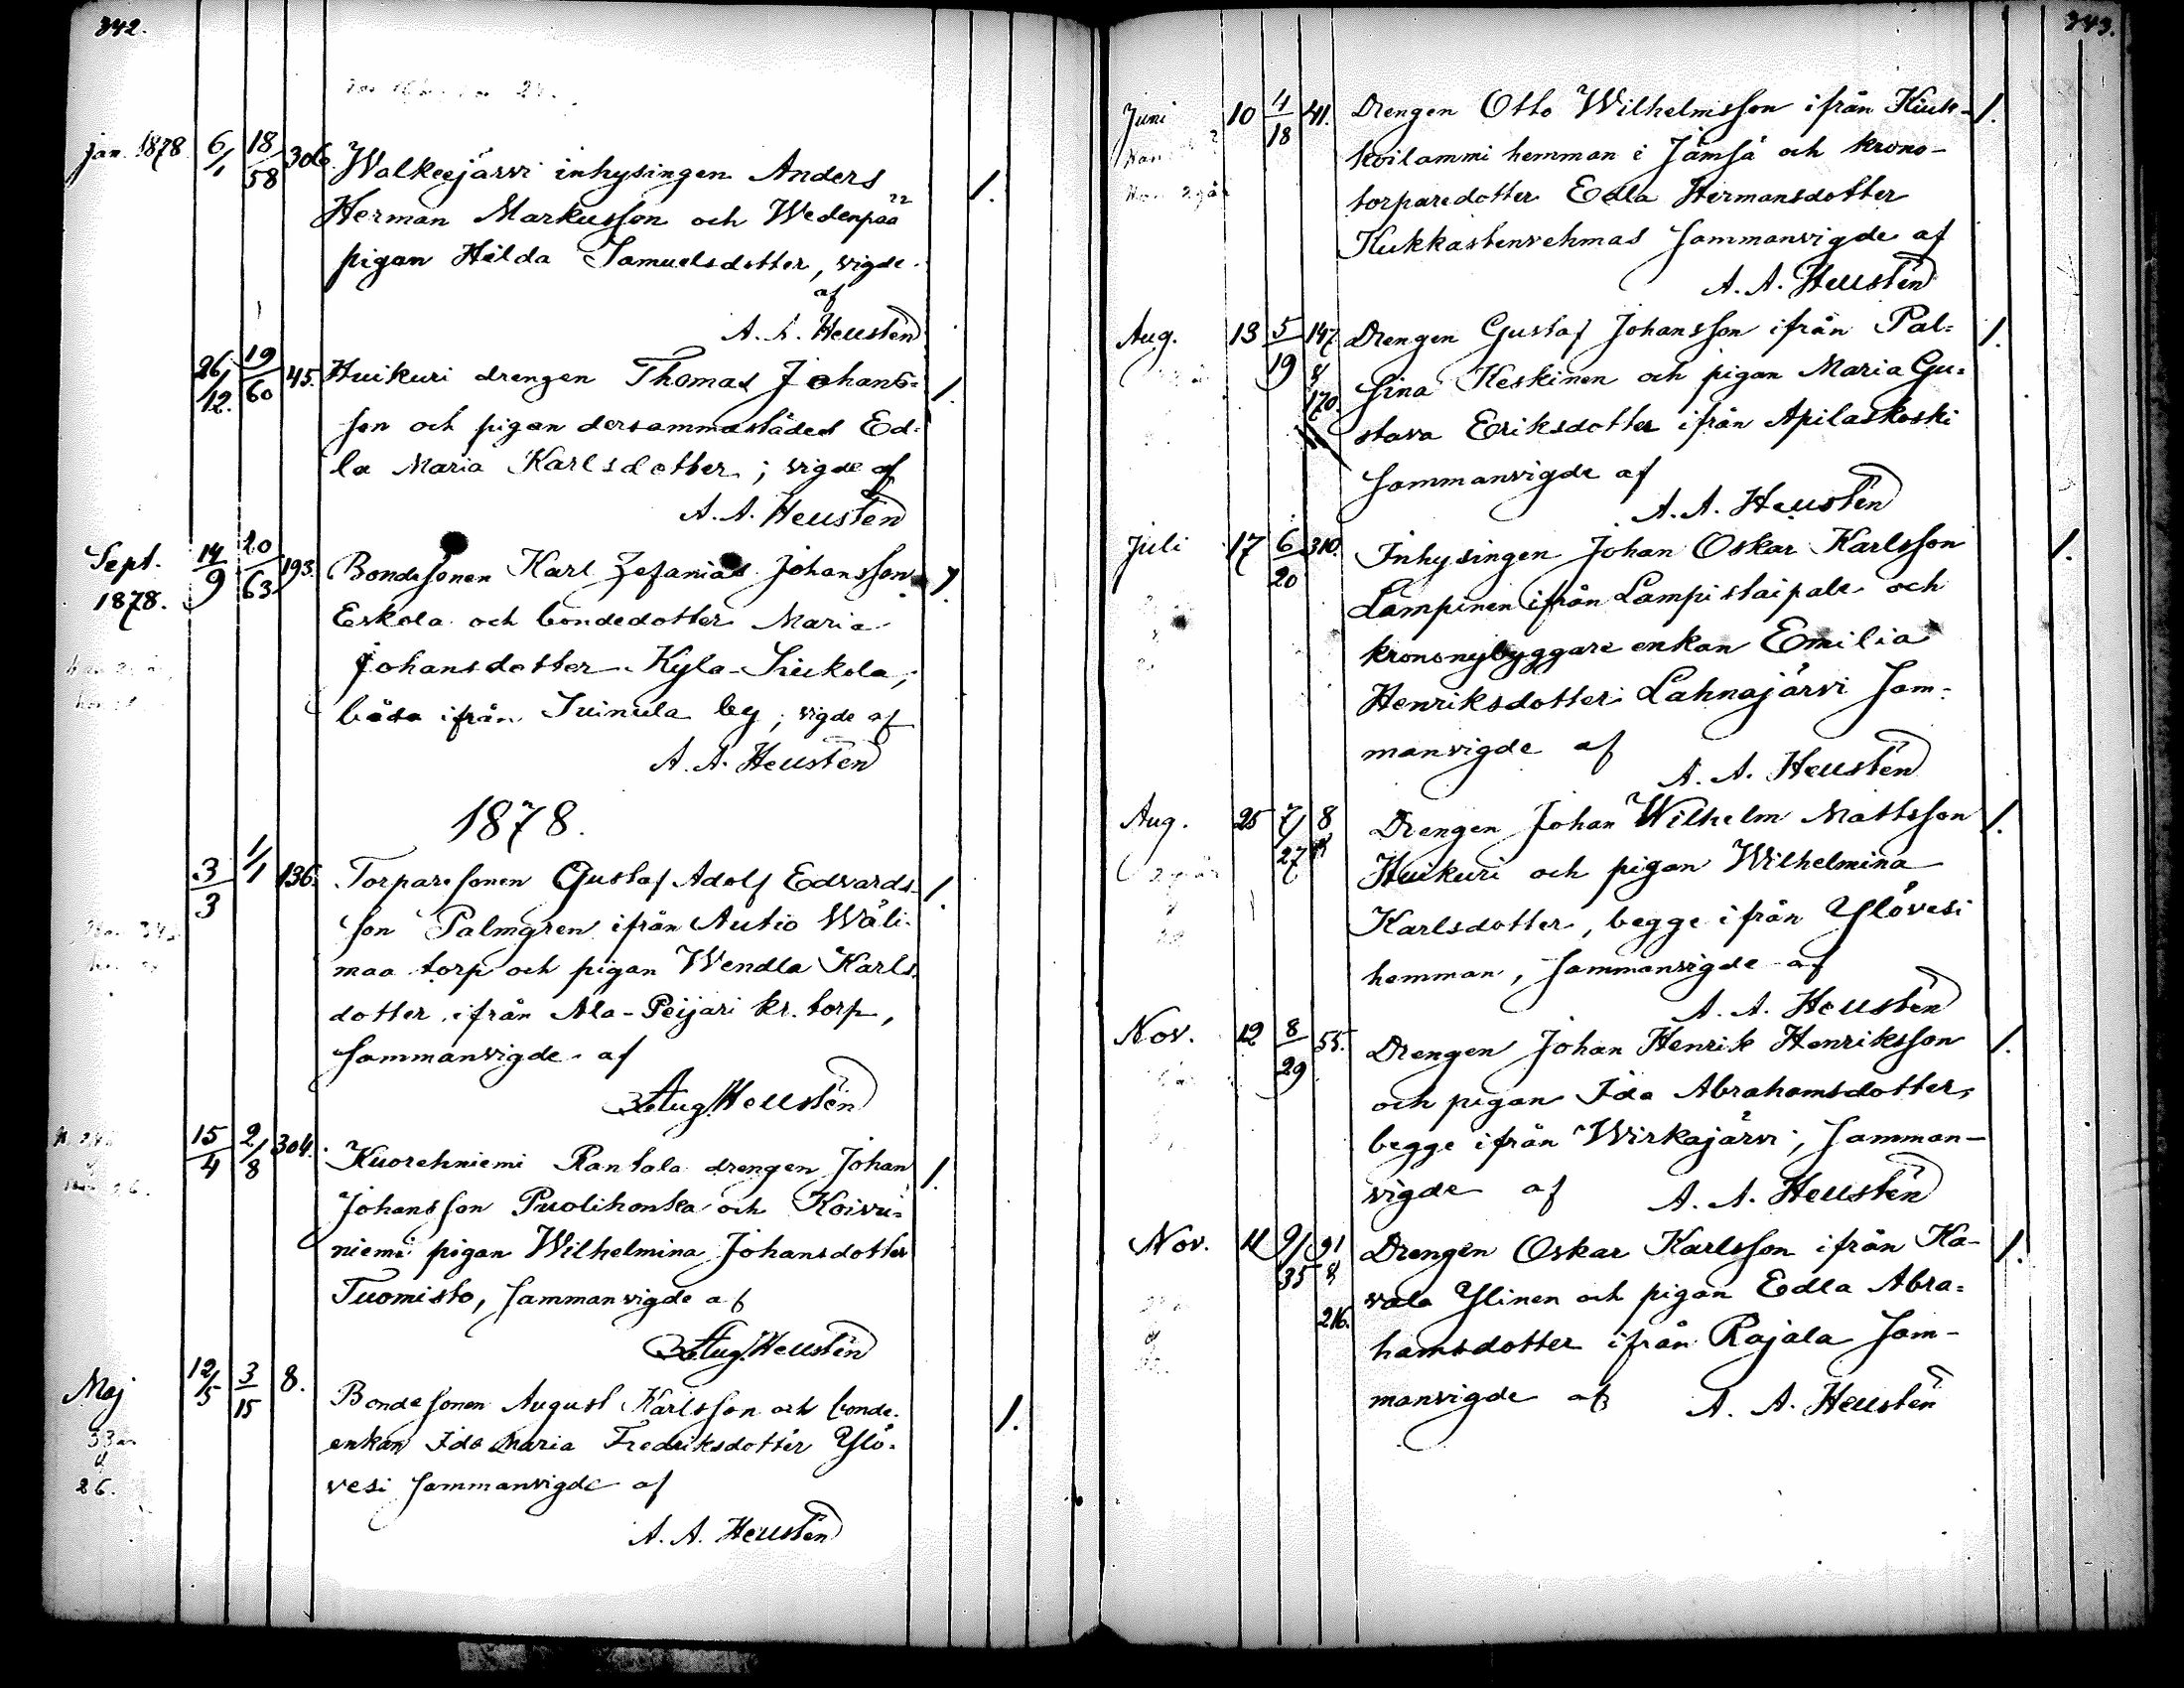 342.
Jan. 1878 6/1 18/58 306. Walkeejärvi inhysingen Anders 1.
Herman Markusson och Wedenpää
pigan Hilda Samuelsdotter, vigde
af
A. A. Heustén
26/12. 19/60 45. Huikuri drengen Thomas Johans- 1.
son och pigan dersammastädes Ed-
la Maria Karlsdotter; vigde af
A. A. Heustén
Sept. 1878. 14/9 20/63 193. Bondesonen Karl Zefanias Johansson 1.
Eskola och bondedotter Maria
Johansdotter Kylä-Siukola,
båda ifrån Juinula by, vigde af
A. A. Heustén
1878.
3/3 1/1 136. Torparesonen Gustaf Adolf Edvards- 1.
son Palmgren ifrån Autio Wäli-
maa torp och pigan Wendla Karls-
dotter ifrån Ala-Peijari kr. torp,
sammanvigde af
Aug. Heustén
15/4 2/8 304. Kuorehniemi Rantala drengen Johan 1.
Johansson Puolihonka och Koivu-
niemi pigan Wilhelmina Johansdotter
Tuomisto, sammanvigde af
Aug. Heustén
Maj 12/5 3/15 8. Bondesonen August Karlsson och bonde- 1.
33 år
&
26.
enkan Ida Maria Fredriksdotter Ylö-
vesi sammanvigde af
A. A. Heustén
343.
Juni 10 4/18 41. Drengen Otto Wilhelmsson ifrån Kuk- 1.
koilammi hemman i Jämsä och krono-
torparedotter Edla Hermansdotter
Kukkastenvehmas sammanvigde af
A. A. Heustén
Aug. 13 5/19 147 & 170. Drengen Gustaf Johansson ifrån Pal- 1.
sina Keskinen och pigan Maria Gu-
stava Eriksdotter ifrån Apilaskoski
sammanvigde af
A. A. Heustén
Juli 17 6/20 310. Inhysingen Johan Oskar Karlsson 1.
Lampinen ifrån Lampistaipale och
krononybyggare enkan Emilia
Henriksdotter Lahnajärvi sam-
manvigde af
A. A. Heustén
Aug. 25 7/27 8 Drengen Johan Wilhelm Mattsson 1.
Huikuri och pigan Wilhelmina
Karlsdotter, begge ifrån Ylövesi
hemman, sammanvigde af
A. A. Heustén
Nov. 12 8/29 55. Drengen Johan Henrik Henriksson 1.
och pigan Ida Abrahamsdotter,
begge ifrån Wirkajärvi, samman-
vigde af A. A. Heustén
Nov. 11 9/35 91 & 216. Drengen Oskar Karlsson ifrån Ka- 1.
vala Ylinen och pigan Edla Abra-
hamsdotter ifrån Rajala sam-
manvigde af A. A. Heustén